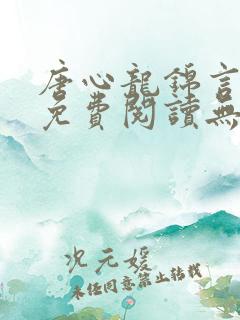 唐心龍錦言
免費閱讀無
次元媛
未任同意禁止转载